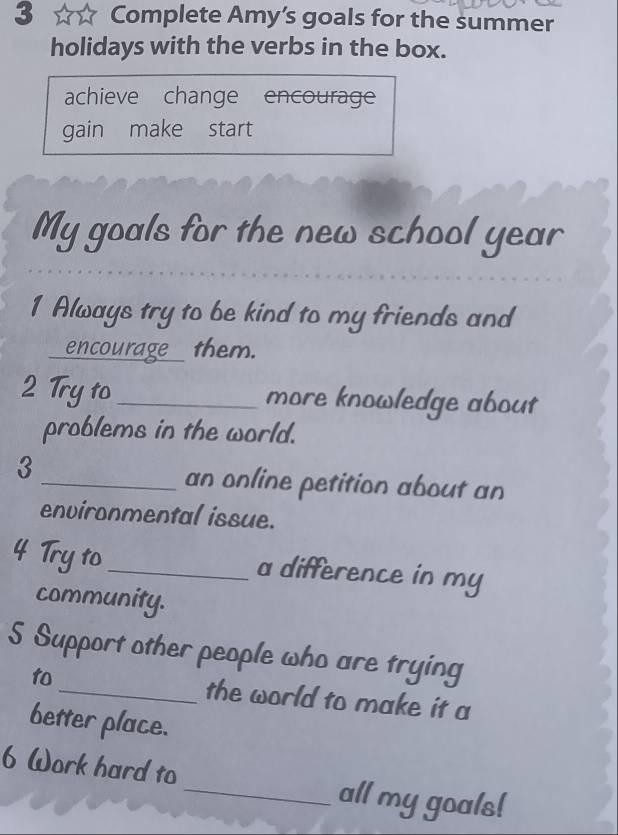 3 ☆☆ Complete Amy's goals for the summer
holidays with the verbs in the box.
achieve change encourage
gain make start
My goals for the new school year
1 Always try to be kind to my friends and
encourage them.
2 Try to ________ more knowledge about
problems in the world.
3 ________ an online petition about an
environmental issue.
4 Try to ________ a difference in my
community.
5 Support other people who are trying
to ________ the world to make it a
better place.
6 Work hard to ________ all my goals!